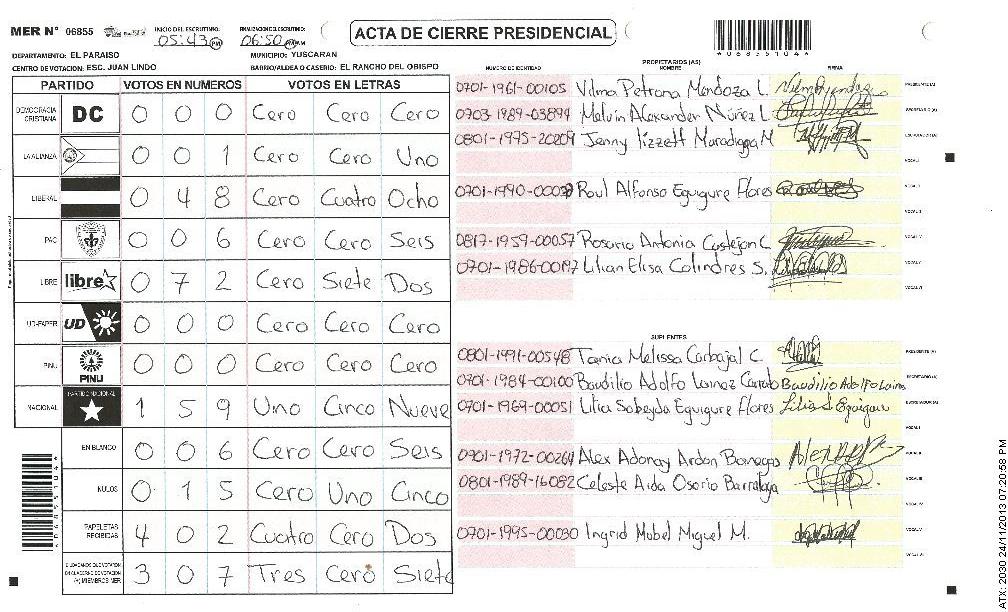 MER N° 06855 INICIO DEL ESCRUTINIO: 05:43 PM FINALIZACION DEL ESCRUTINIO: 06:50 PM ACTA DE CIERRE PRESIDENCIAL
DEPARTAMENTO: EL PARAISO MUNICIPIO: YUSCARAN
CENTRO DE VOTACION: ESC. JUAN LINDO BARRIO/ALDEA O CASERIO: EL RANCHO DEL OBISPO
PARTIDO VOTOS EN NUMEROS VOTOS EN LETRAS
DEMOCRACIA CRISTIANA DC 0 0 0 Cero Cero Cero
LA ALIANZA 0 0 1 Cero Cero Uno
LIBERAL 0 4 8 Cero Cuatro Ocho
PAC 0 0 6 Cero Cero Seis
LIBRE libre 0 7 2 Cero Siete Dos
UD-FAPER UD 0 0 0 Cero Cero Cero
PINU PINU 0 0 0 Cero Cero Cero
NACIONAL PARTIDO NACIONAL 1 5 9 Uno Cinco Nueve
EN BLANCO 0 0 6 Cero Cero Seis
NULOS 0 1 5 Cero Uno Cinco
PAPELETAS RECIBIDAS 4 0 2 Cuatro Cero Dos
3 0 7 Tres Cero Siete
PROPIETARIOS (AS)
NUMERO DE IDENTIDAD NOMBRE FIRMA
0701-1961-00105 Vilma Petrona Mendoza L. PRESIDENTE (A)
0703-1989-03894 Melvin Alexander Núñez L SECRETARIO (A)
0801-1975-20209 Jenny lizzett Maradiaga M ESCRUTADOR (A)
VOCAL I
0701-1990-00078 Raul Alfonso Eguigure Flores VOCAL II
VOCAL III
0817-1959-00057 Rosario Antonia Castejon C. VOCAL IV
0701-1986-00197 Lilian Elisa Colindres S. VOCAL V
VOCAL VI
SUPLENTES
0801-1991-00548 Tania Melissa Carbajal C. PRESIDENTE (A)
0701-1984-00100 Baudilio Adolfo Lainez Baudilio Adolfo Lainez SECRETARIO (A)
0701-1969-00051 Lilia Sobeyda Eguigure Flores Lilia S Eguigure ESCRUTADOR (A)
VOCAL I
0901-1972-00264 Alex Adonay Ardon VOCAL II
0801-1989-16082 Celeste Aida Osorio VOCAL III
VOCAL IV
0701-1995-00030 Ingrid Mabel Miguel M. VOCAL V
VOCAL VI
ATX: 2030 24/11/2013 07:20:58 PM